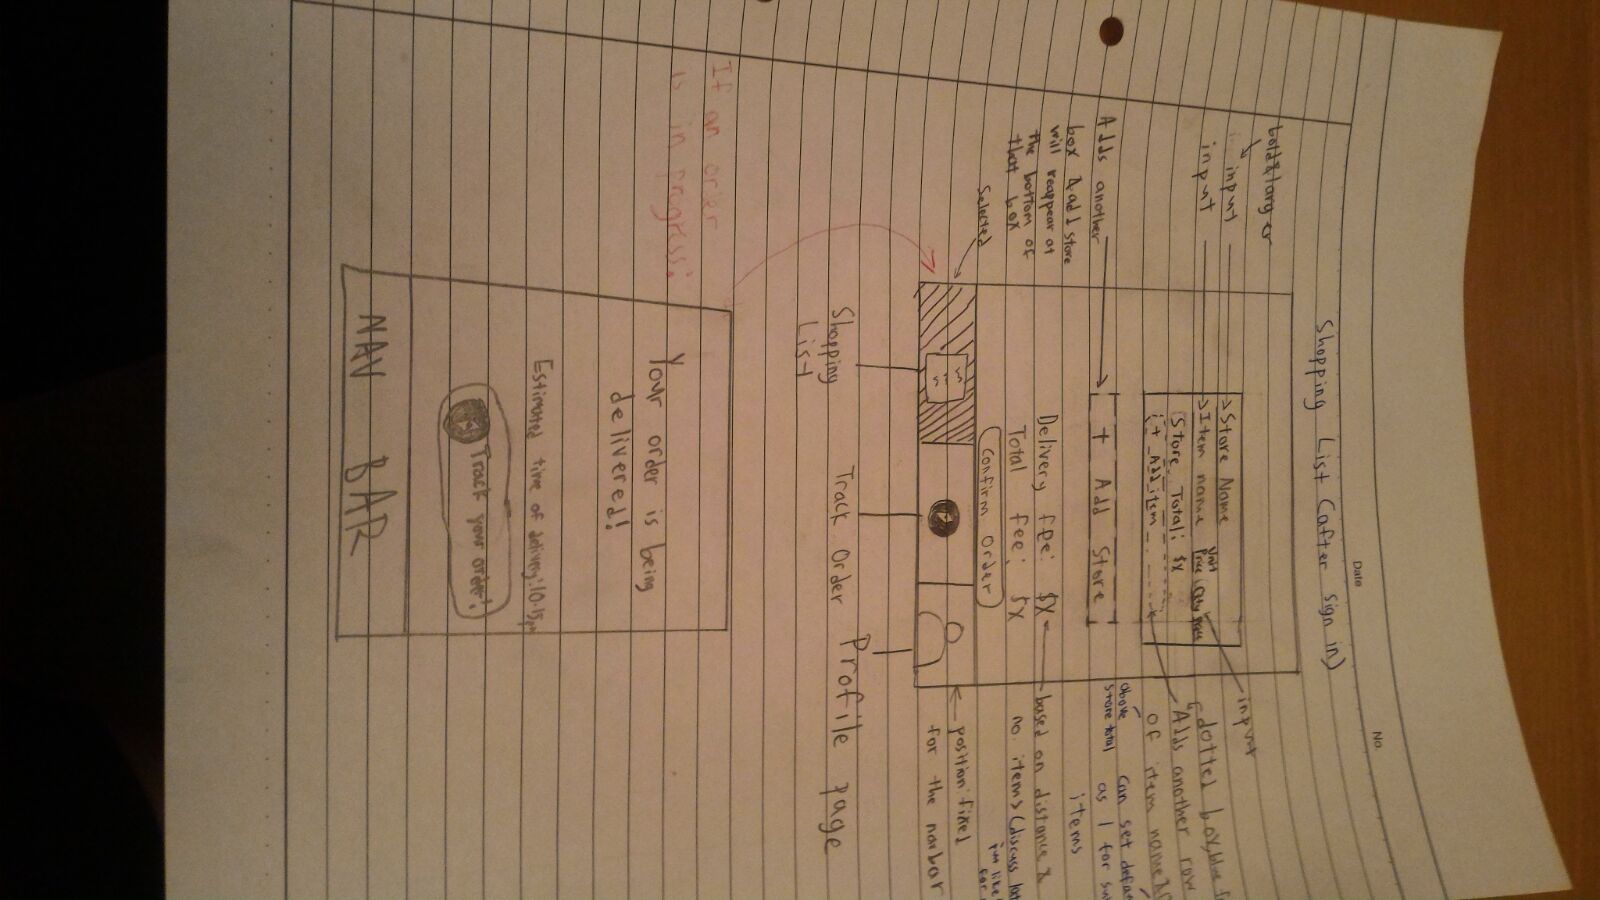 No.
Date
Shopping List (after sign in)
bold & larger
input
input
Store Name
Item name Unit Price Qty
Store Total: $X
+ Add item
input
dotted box, blue
Adds another row
of item name &
above
Store total
can set
as 1 for
items
Adds another
box & add store
will reappear at
the bottom of
that box
+ Add Store
Delivery fee: $X
Total fee: $X
Confirm Order
based on distance &
no. items (discuss
like
for
Selected
position: fixed
for the navbar
Shopping
List
Track Order
Profile page
If an order
is in progress:
Your order is being
delivered!
Estimated time of delivery: 10.15pm
Track your order!
NAV BAR